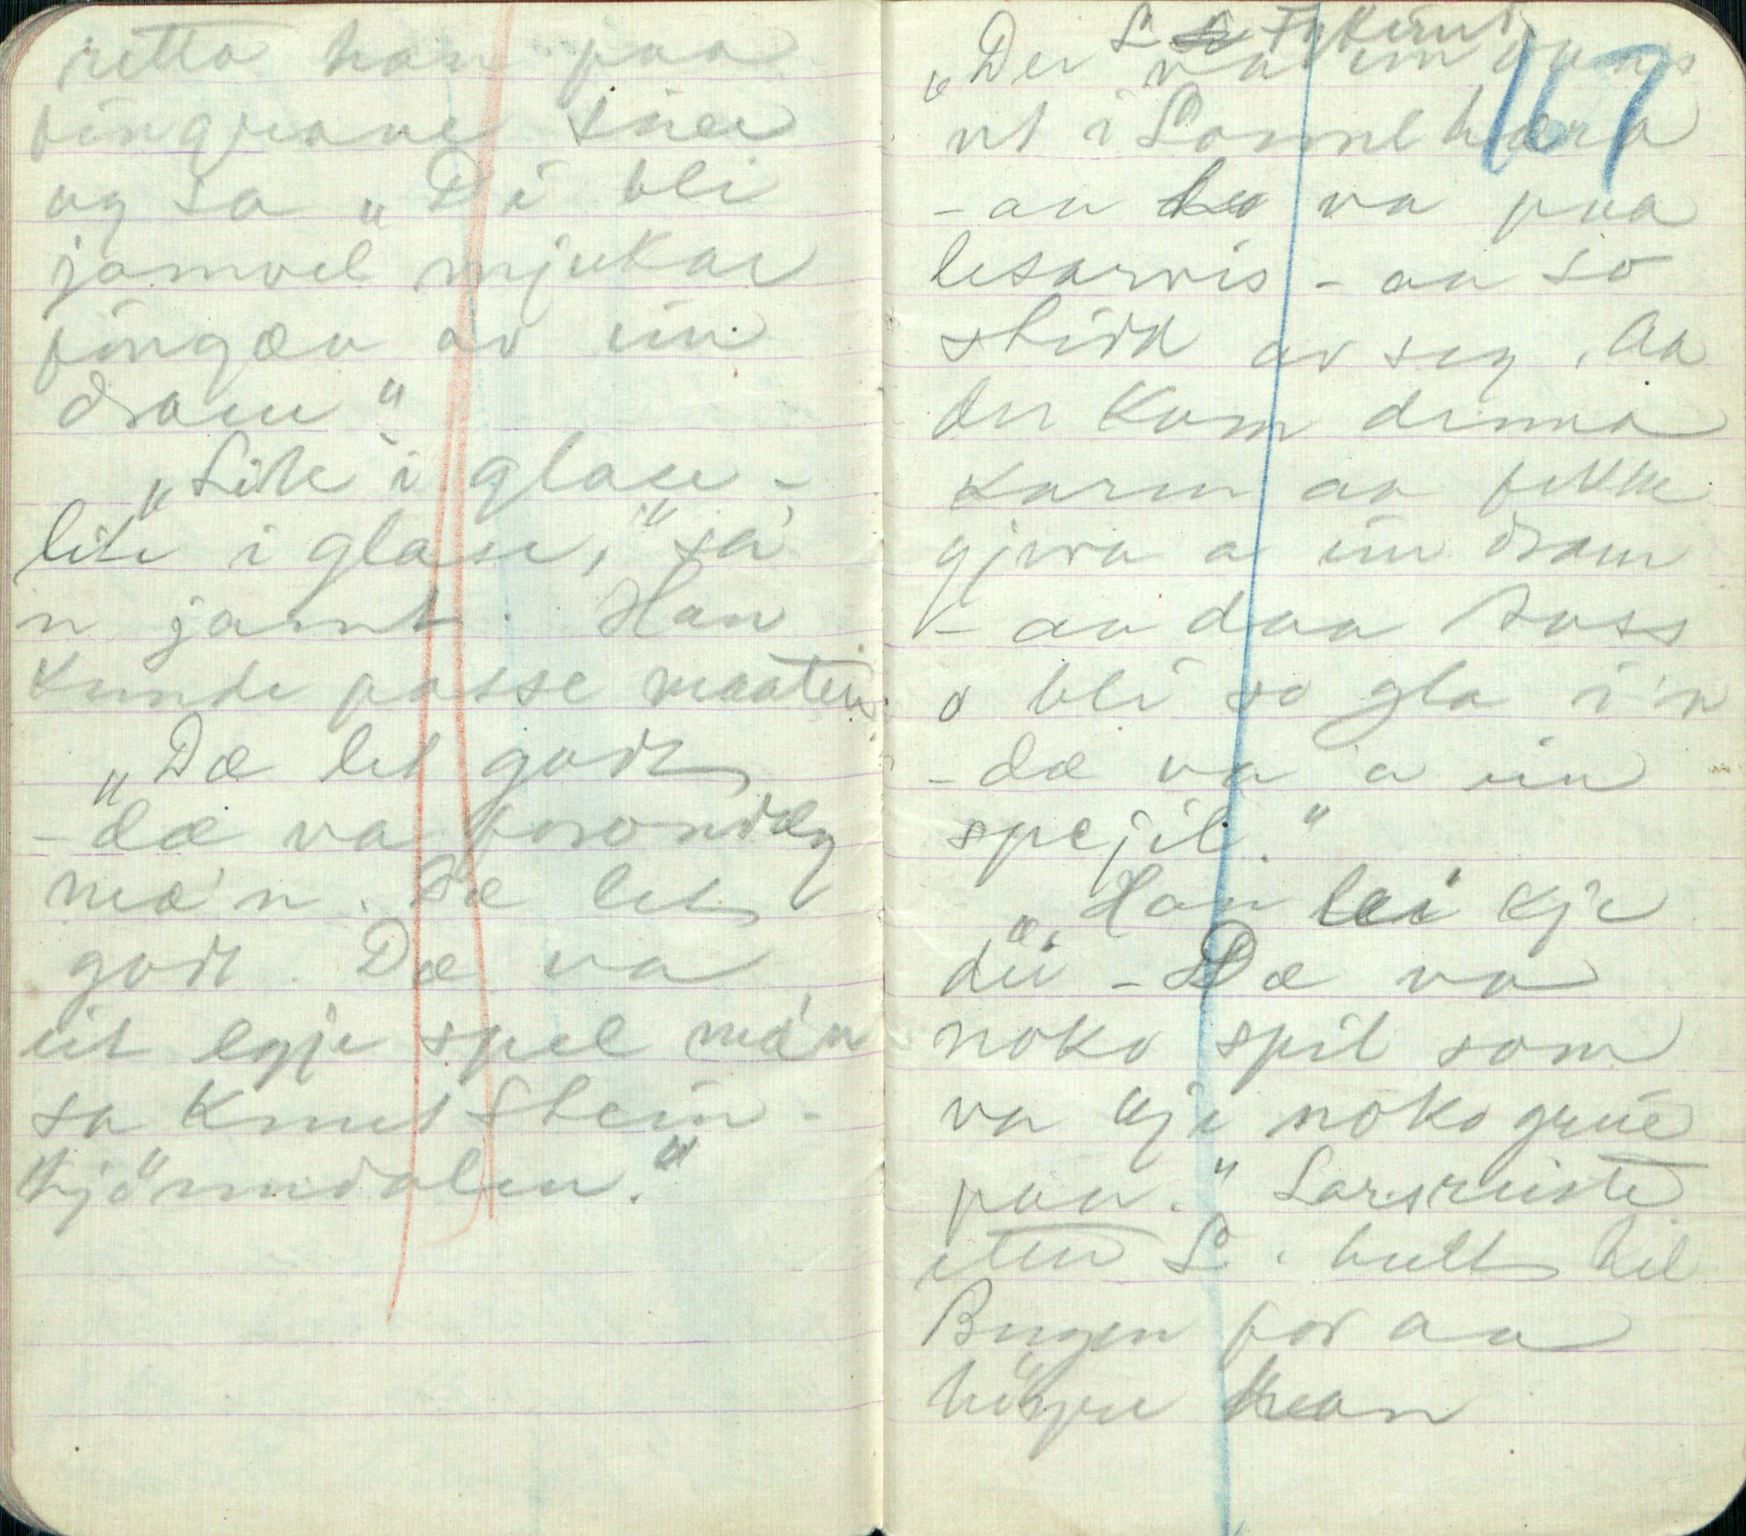 retta han paa
fingrane sine
og sa „Di bli
jamvel mjukar
fingæn av ein
dram"
„Lite i glase –
lite i glase," sa
n jamt. Han
kunde passe maaten.
„Dæ let godt
– dæ va forondleg
mæ'n. Dæ let
godt. Dæ va
eit egje spel mæ'n
sa Knut Stein-
kjönndalen."
167
L
„Der va ein
ut i Sannehæra
– aa ho va paa
lesarvis – aa so
stird av seg. Aa
der kom denna
karin aa fekk
gjeva a ein dram
– aa daa
o bli so gla i'n
– dæ va a ein
spejil."
„Han lei kje
dei – Dæ va
noko spil som
va kje noko greie
paa." Lars
L. heilt til
Bergen for aa
höyre han